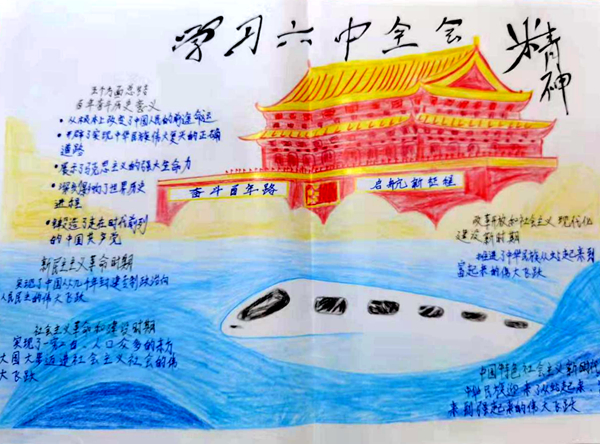 学习六中全会
精神
五个方面总结
百年奋斗历史意义
• 从根本上改变了中国人民的前途命运
• 开辟了实现中华民族伟大复兴的正确
道路
• 展示了马克思主义的强大生命力
• 深刻影响了世界历史
进程
• 锻造了走在时代前列
的中国共产党
奋斗百年路
启航新征程
改革开放和社会主义现代化
建设新时期
推进了中华民族从站起来到
富起来的伟大飞跃
新民主主义革命时期
实现了中国从几千年封建专制政治向
人民民主的伟大飞跃
社会主义革命和建设时期
实现了一穷二白、人口众多的东方
大国大步迈进社会主义社会的伟
大飞跃
中国特色社会主义新时代
中华民族迎来了从站起来、
来到强起来的伟大飞跃